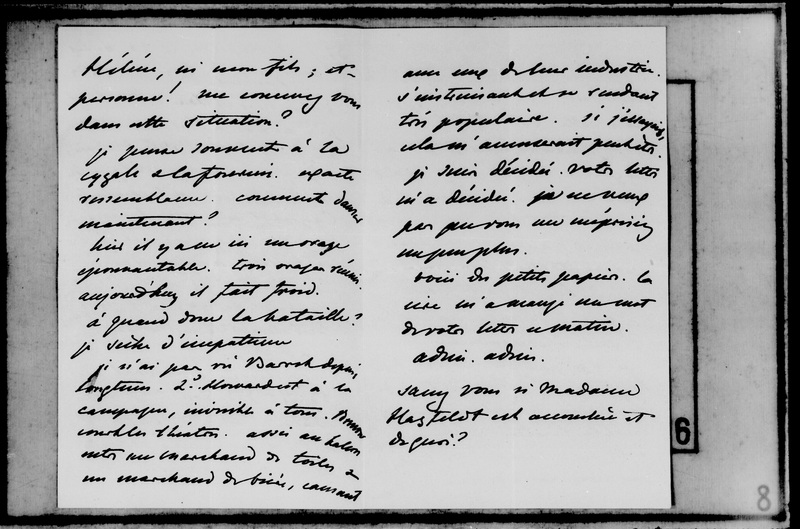 Hélène, ni mon fils ; et
personne ! me concevez vous
dans cette situation ?
je pense souvent à la
cygale & la fourmi. exacte
ressemblance. comment danser
maintenant ?
hier il y a eu ici un orage
épouvantable. trois orages réunis.
aujourd'huy il fait froid.
à quand donc la bataille ?
je sèche d'impatience
je n'ai pas vu depuis
longtems. Howard est à la
campagne, invisible à tous.
théâtre. assis au balcon
entre un marchand de toiles &
un marchand de bière, causant
avec eux de leur industrie.
s'instruisant et se rendant
très populaire. si j'essayais,
cela m'amuserait peutêtre.
je suis décidé. votre lettre
m'a décidé. je ne veux
pas que vous me méprisiez
un peu plus.
voici des petits papiers. la
cire m'a mangé un mot
de votre lettre ce matin.
adieu. adieu.
savez vous si Madame
Hatzfeldt est accouchée et
de quoi ?
6
8